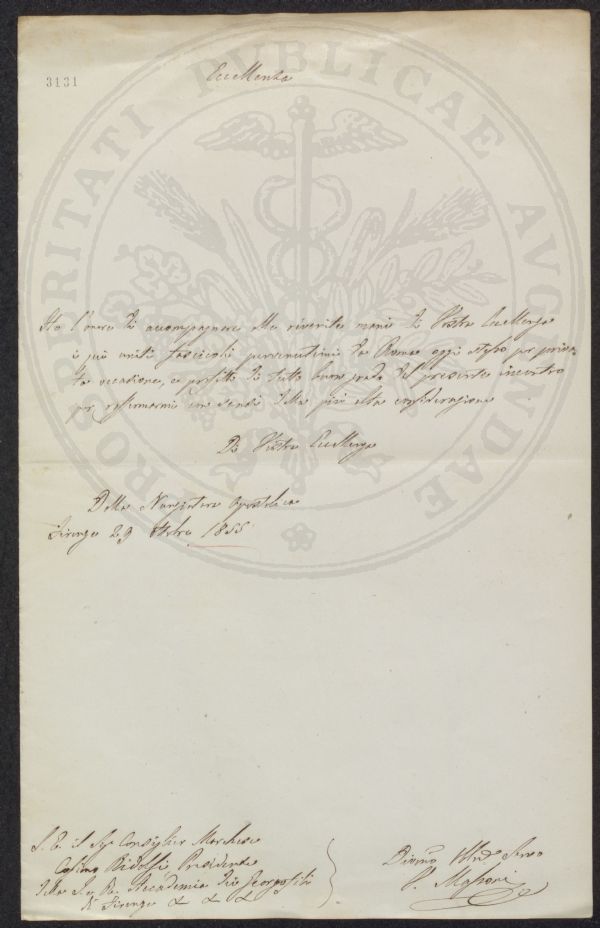 3131
Eccellenza
PROSPERITATI PUBLICAE AUGENDAE
Ho l'onore di accompagnare alle riverite mani di Vostra Eccellenza
i più uniti fascicoli pervenutimi da Roma oggi stesso per priva-
ta occasione, e profitto di tutto buon grado del presente incontro
per rassegnarmi con sensi della più alta considerazione
Di Vostra Eccellenza
Dalla Nunziatura Apostolica
Firenze 29 1855
S. E. il Sigr Consigliere Marchese
Cosimo Ridolfi Presidente
della I. e R. Accademia dei Georgofili
di Firenze
Servo